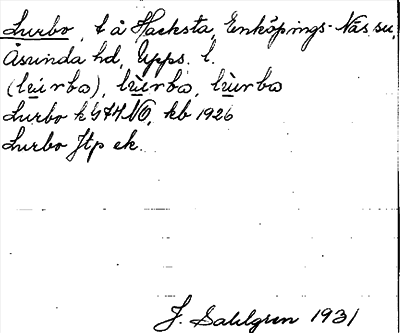 Lurbo, t å Hacksta, Enköpings-Näs sn,
Åsunda hd, Upps. l.
(lúrbo), lùrbo, lùrbo
Lurbo k 474 NO, kb 1926
Lurbo Jtp ek.
J. Sahlgren 1931